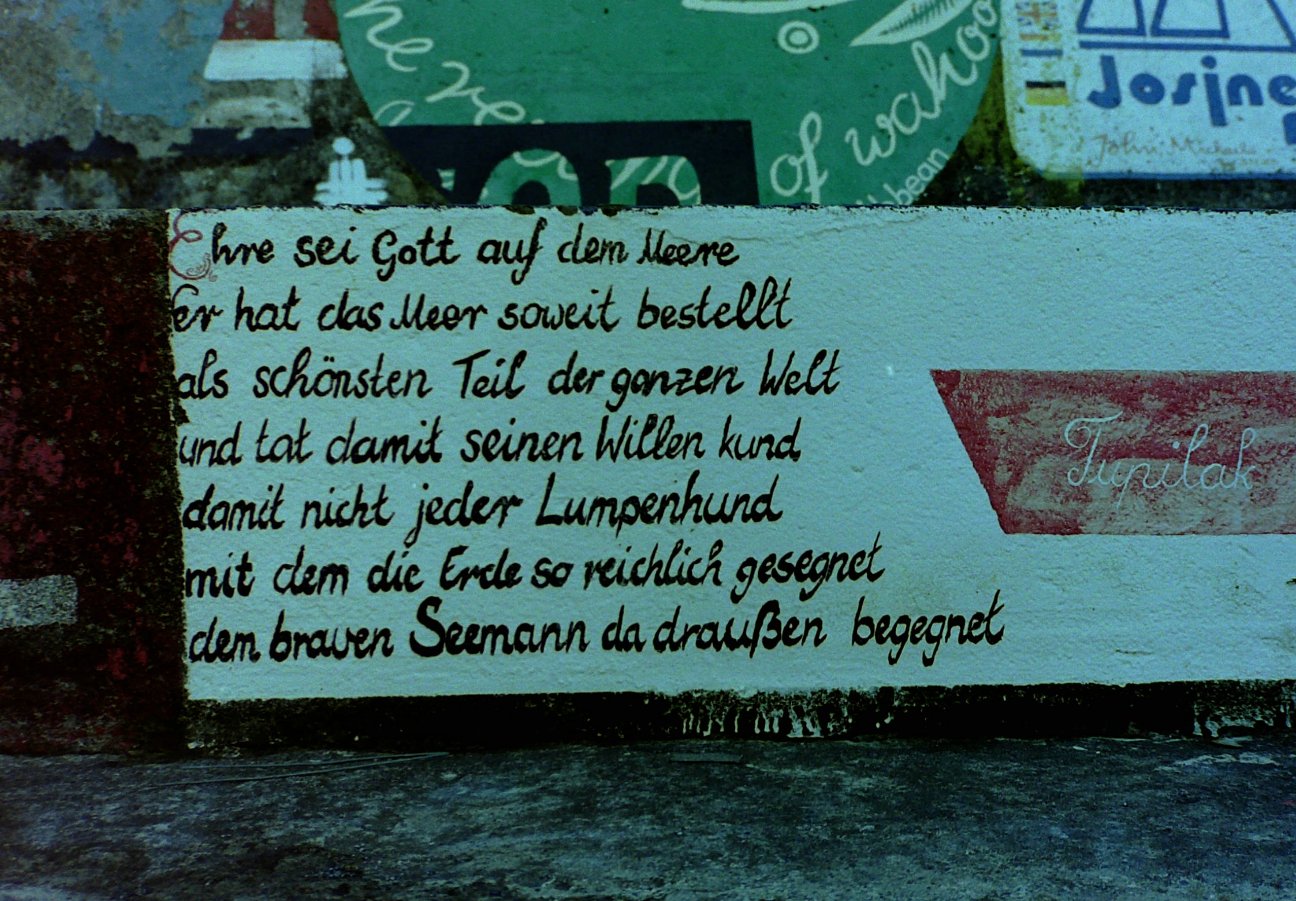 the re
of wahoo
bbean
Josjne
John Michaele
Ehre sei Gott auf dem Meere
Er hat das Meer soweit bestellt
als schönsten Teil der ganzen Welt
und tat damit seinen Willen kund,
damit nicht jeder Lumpenhund
mit dem die Erde so reichlich gesegnet
dem braven Seemann da draußen begegnet
Tupilak